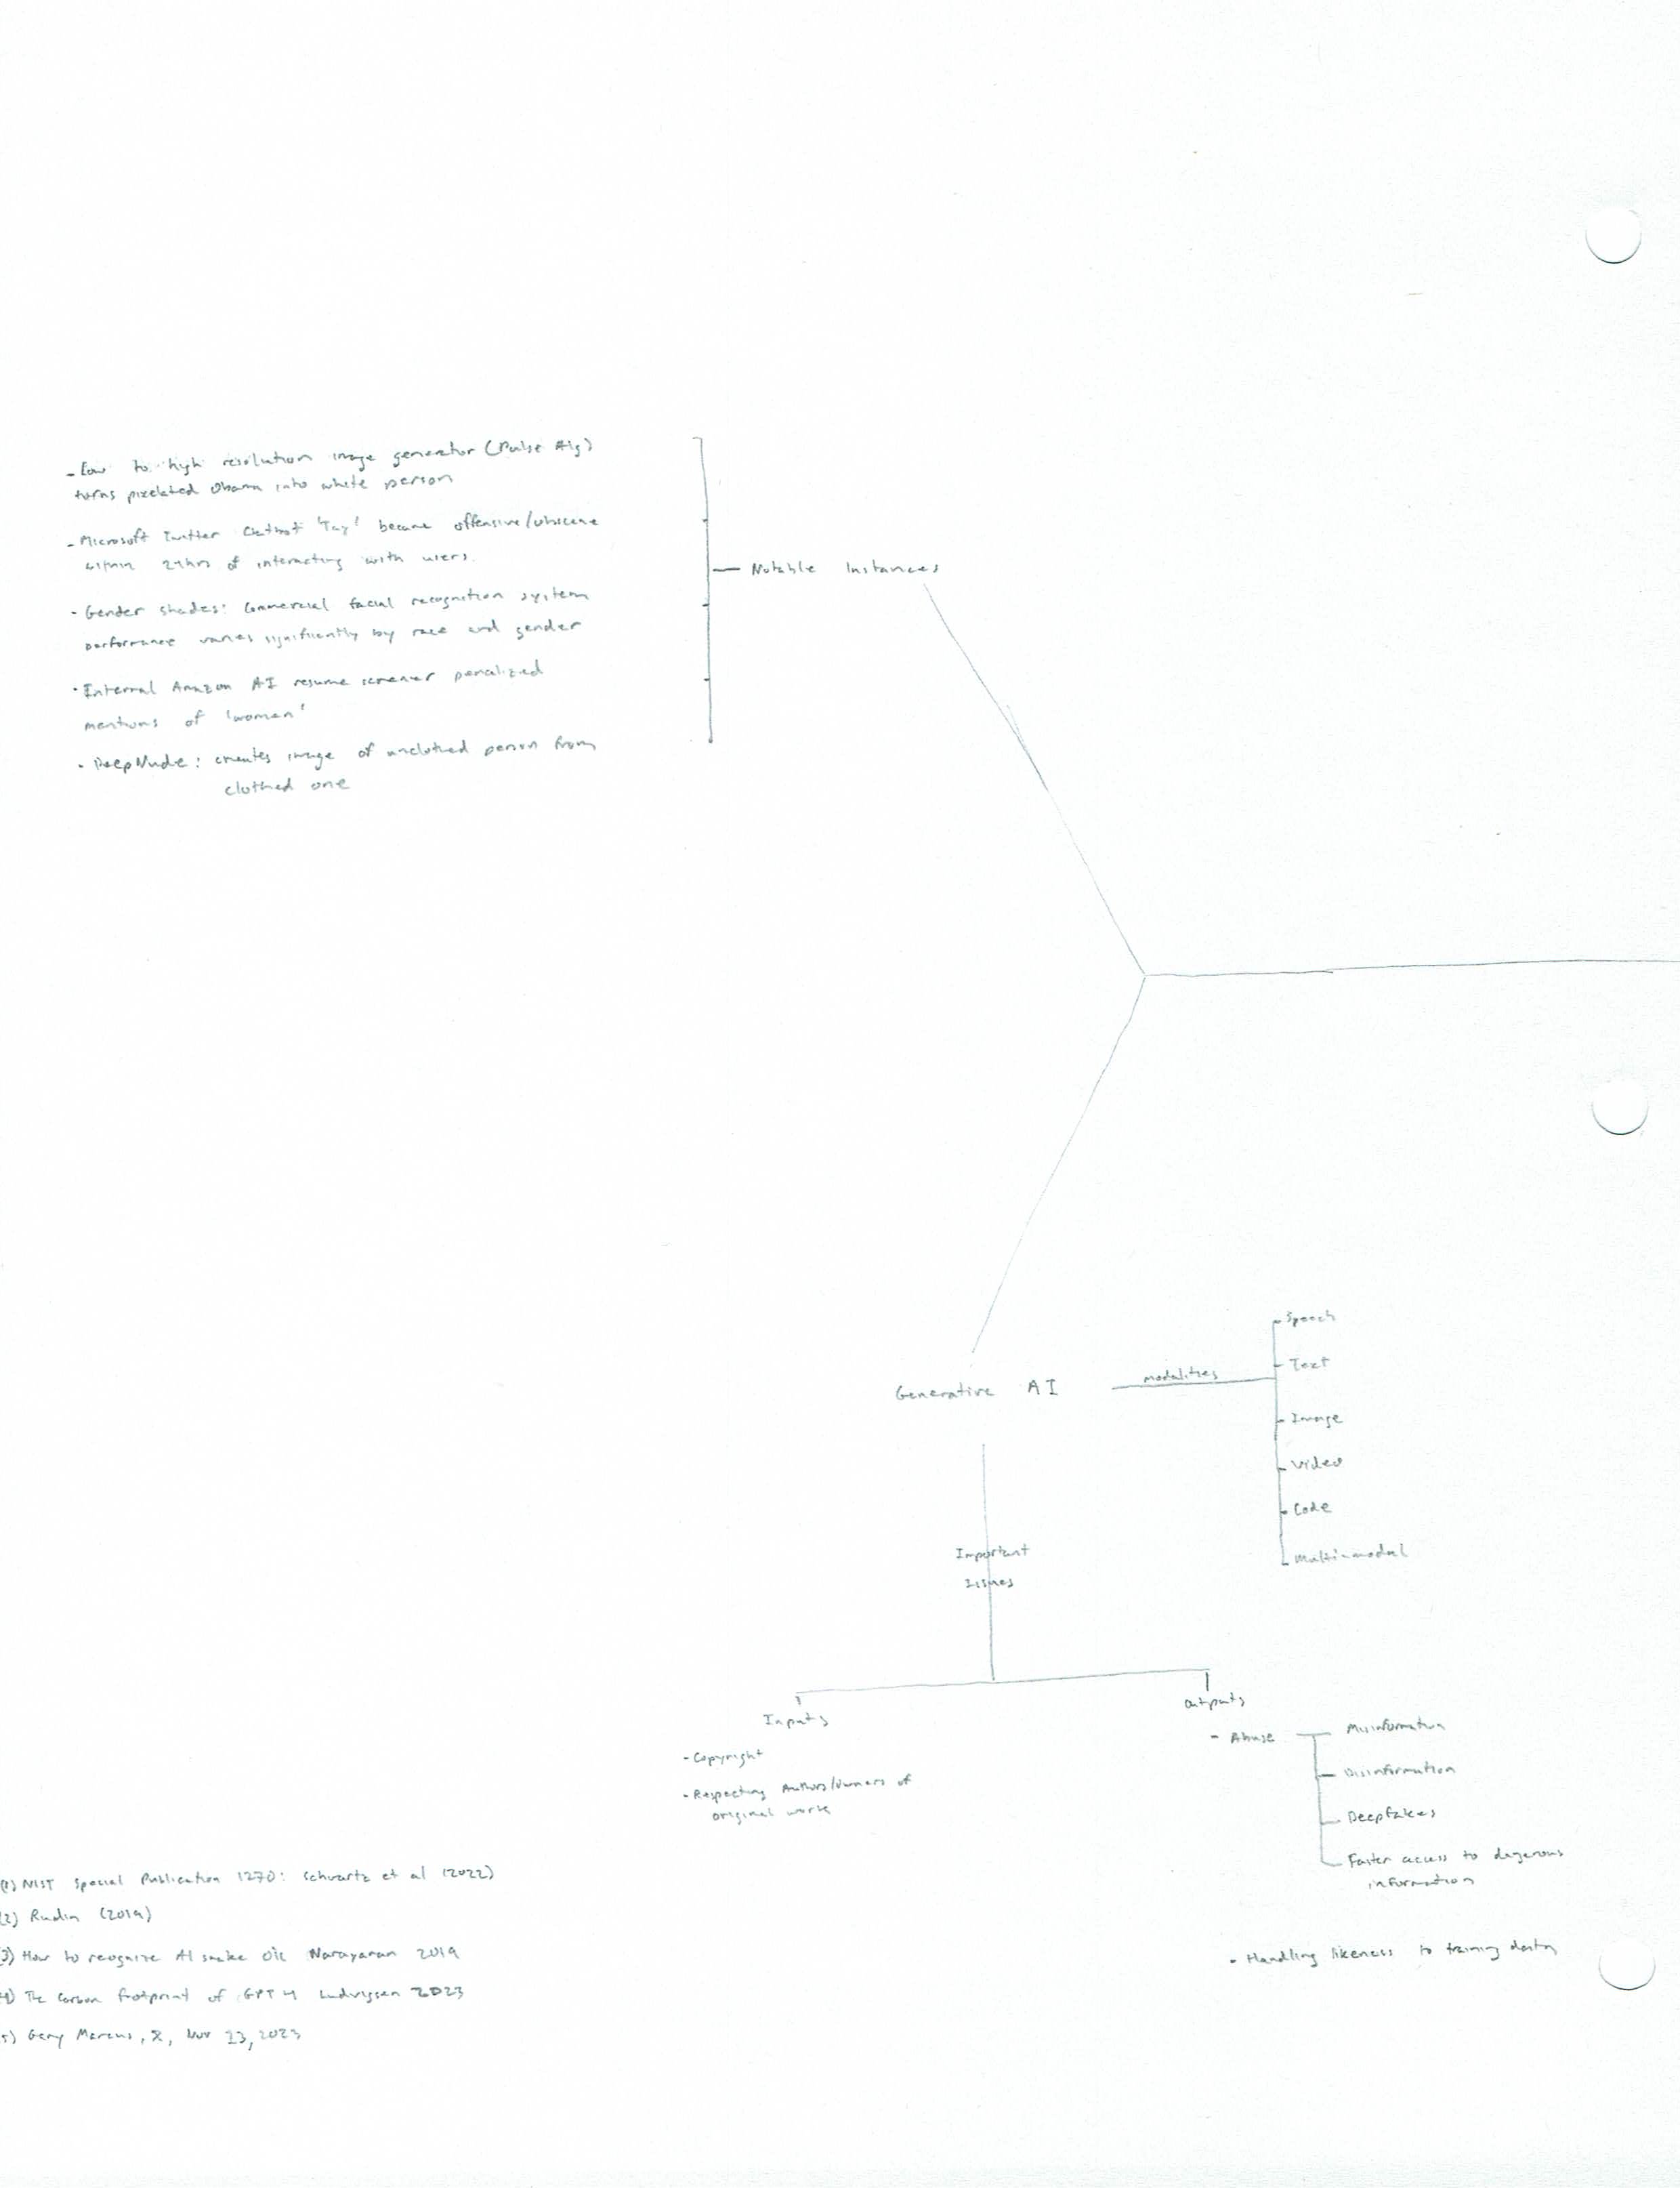 - Low to high resolution image generator (Pulse Alg)
turns pixelated Obama into white person
- Microsoft Twitter Chatbot 'Tay' became offensive/obscene
within 24hrs of interacting with users.
- Gender shades: Commercial facial recognition system
performance varies significantly by race and gender
- Internal Amazon AI resume screener penalized
mentions of 'women'
- DeepNude: creates image of unclothed person from
clothed one
Notable Instances
Generative AI
modalities
Speech
Text
Image
Video
Code
Multi-modal
Important
Issues
Inputs
- Copyright
- Respecting Authors/Owners of
original work
Outputs
- Abuse
Misinformation
Disinformation
Deepfakes
Faster access to dangerous
information
- Handling likeness to training data
(1) NIST Special Publication 1270: Schwartz et al (2022)
(2) Rudin (2019)
(3) How to recognize AI snake oil Narayanan 2019
(4) The Carbon footprint of GPT 4 Ludvigsen 2023
(5) Gary Marcus, X, Nov 23, 2023